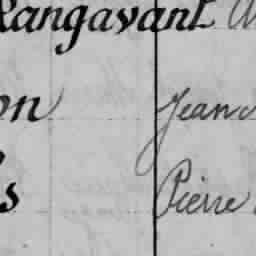 Rangavant
on Jean
s Pierre